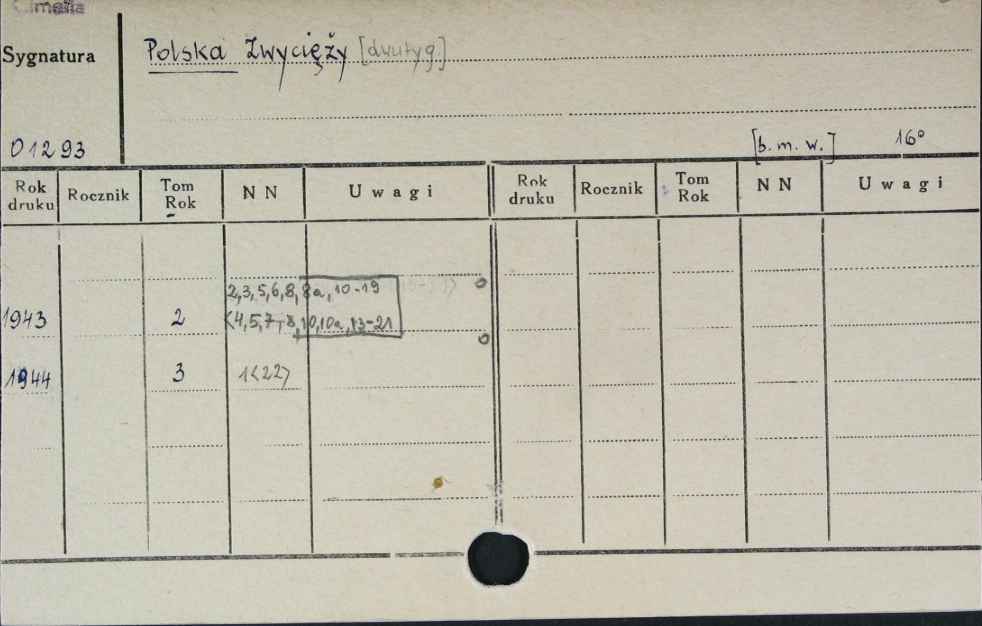 Cimelia
Sygnatura
Polska Zwycięży [dwutyg.]
01293
[b. m. w.] 16°
Rok druku Rocznik Tom Rok NN Uwagi Rok druku Rocznik Tom Rok NN Uwagi
2,3,5,6,8,8a,10-19
1943 2 <4,5,7,8,10,10a,13-21
1944 3 1<22>